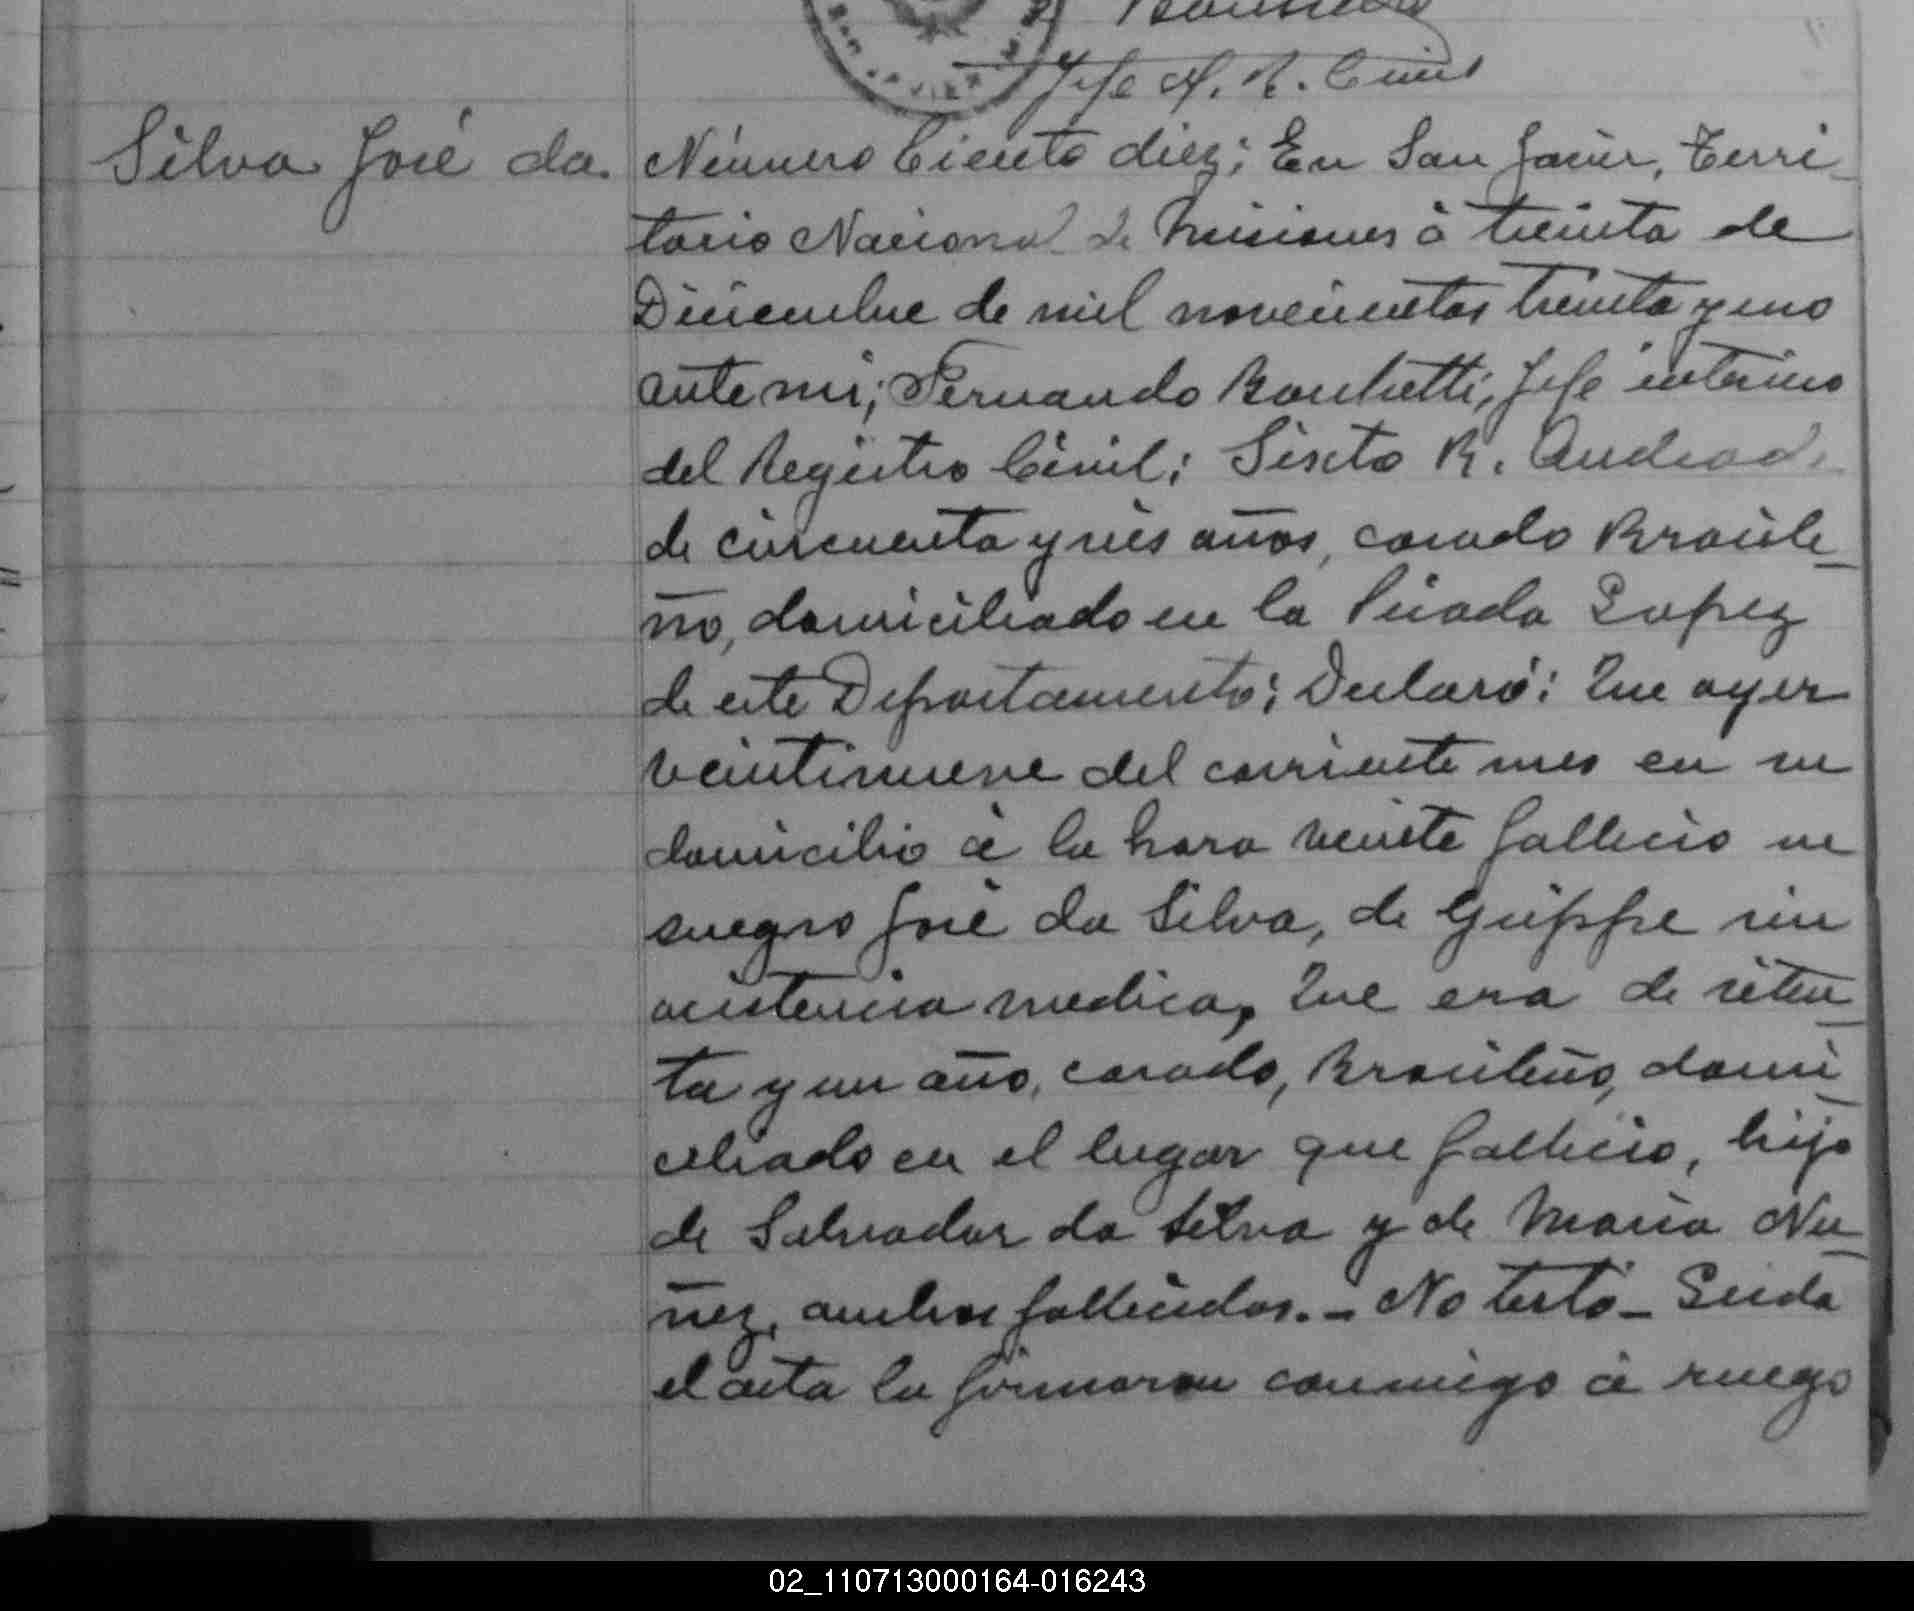 Jefe A. R. Civil
Silva José da.
Número Ciento diez; En San Javier, Terri-
torio Nacional de Misiones á treinta de
Diciembre de mil novecientos treinta y uno
ante mi; Fernando Bonchetti, Jefe interino
del Registro Civil; Sixto R. Andrade
de cincuenta y seis años, casado Brasile-
ño, domiciliado en la Picada Lopez
de este Departamento; Declaró: Que ayer
veintinueve del corriente mes en su
domicilio á la hora veinte fallecio su
suegro José da Silva, de Grippe sin
asistencia medica, Que era de seten-
ta y un año, casado, Brasileño, domi-
ciliado en el lugar que fallecio, hijo
de Salvador da Silva y de Maria Nu-
ñez, ambos fallecidos.- No testó- Leida
el acta la firmaron conmigo á ruego
02_110713000164-016243